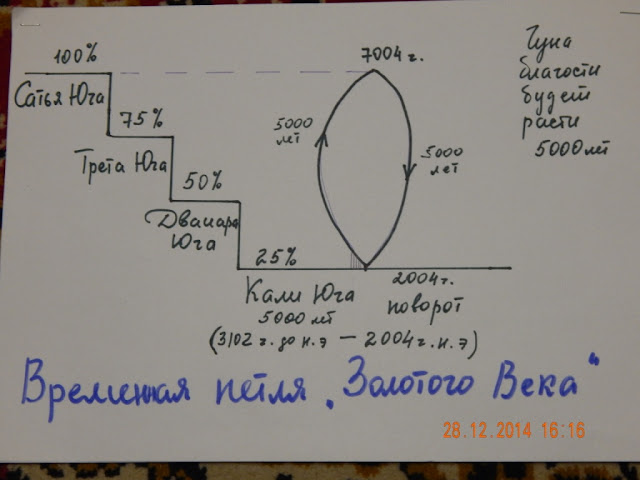 100%
Сатья Юга
75%
Трета Юга
50%
Двапара
Юга
25%
Кали Юга
5000 лет
(3102 г. до н.э – 2004 г. н.э)
7004 г.
5000
лет
5000
лет
2004 г.
поворот
Гуна
благости
будет
расти
5000 лет
Временная петля „Золотого Века“
28.12.2014 16:16